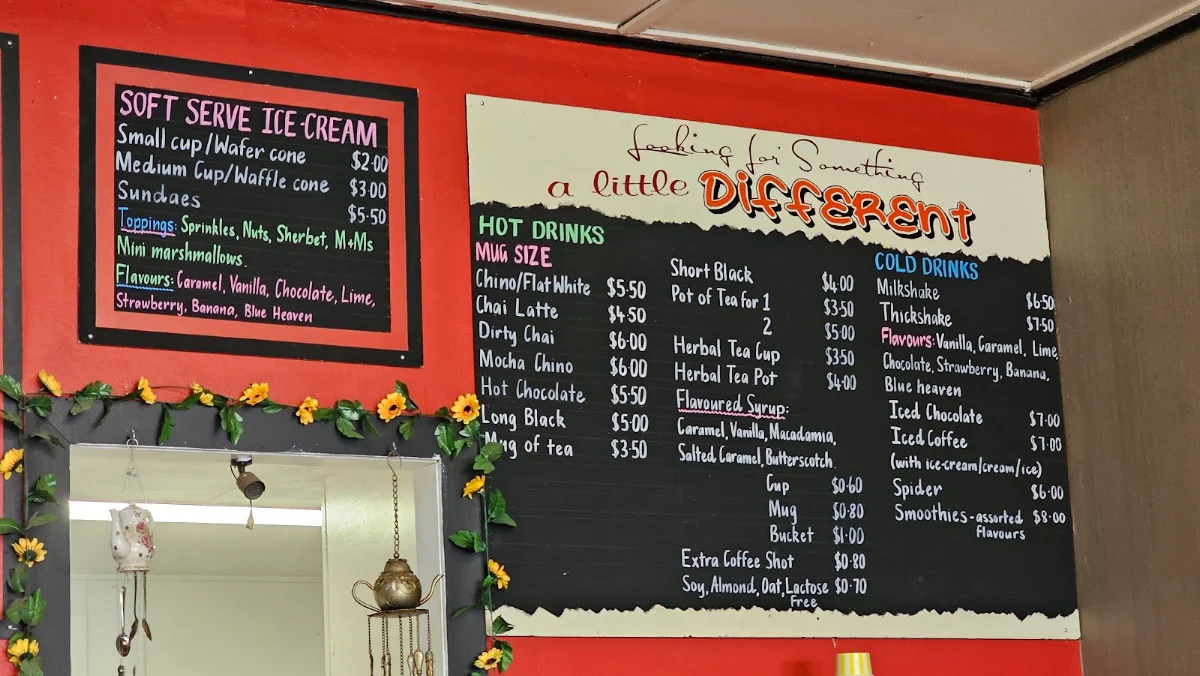 SOFT SERVE ICE-CREAM
Small cup/Wafer cone $2.00
Medium Cup/Waffle cone $3.00
Sundaes $5.50
Toppings: Sprinkles, Nuts, Sherbet, M+Ms
Mini marshmallows.
Flavours: Caramel, Vanilla, Chocolate, Lime,
Strawberry, Banana, Blue Heaven
Looking for Something
a little DiffERENt
HOT DRINKS
MUG SIZE
Chino/Flat White $5.50
Chai Latte $4.50
Dirty Chai $6.00
Mocha Chino $6.00
Hot Chocolate $5.50
Long Black $5.00
Mug of tea $3.50
Short Black $4.00
Pot of Tea for 1 $3.50
2 $5.00
Herbal Tea Cup $3.50
Herbal Tea Pot $4.00
Flavoured Syrup:
Caramel, Vanilla, Macadamia,
Salted Caramel, Butterscotch
Cup $0.60
Mug $0.80
Bucket $1.00
Extra Coffee Shot $0.80
Soy, Almond, Oat, Lactose $0.70
Free
COLD DRINKS
Milkshake $6.50
Thickshake $7.50
Flavours: Vanilla, Caramel, Lime
Chocolate, Strawberry, Banana,
Blue heaven
Iced Chocolate $7.00
Iced Coffee $7.00
(with ice-cream/cream/ice)
Spider $6.00
Smoothies - assorted $8.00
flavours